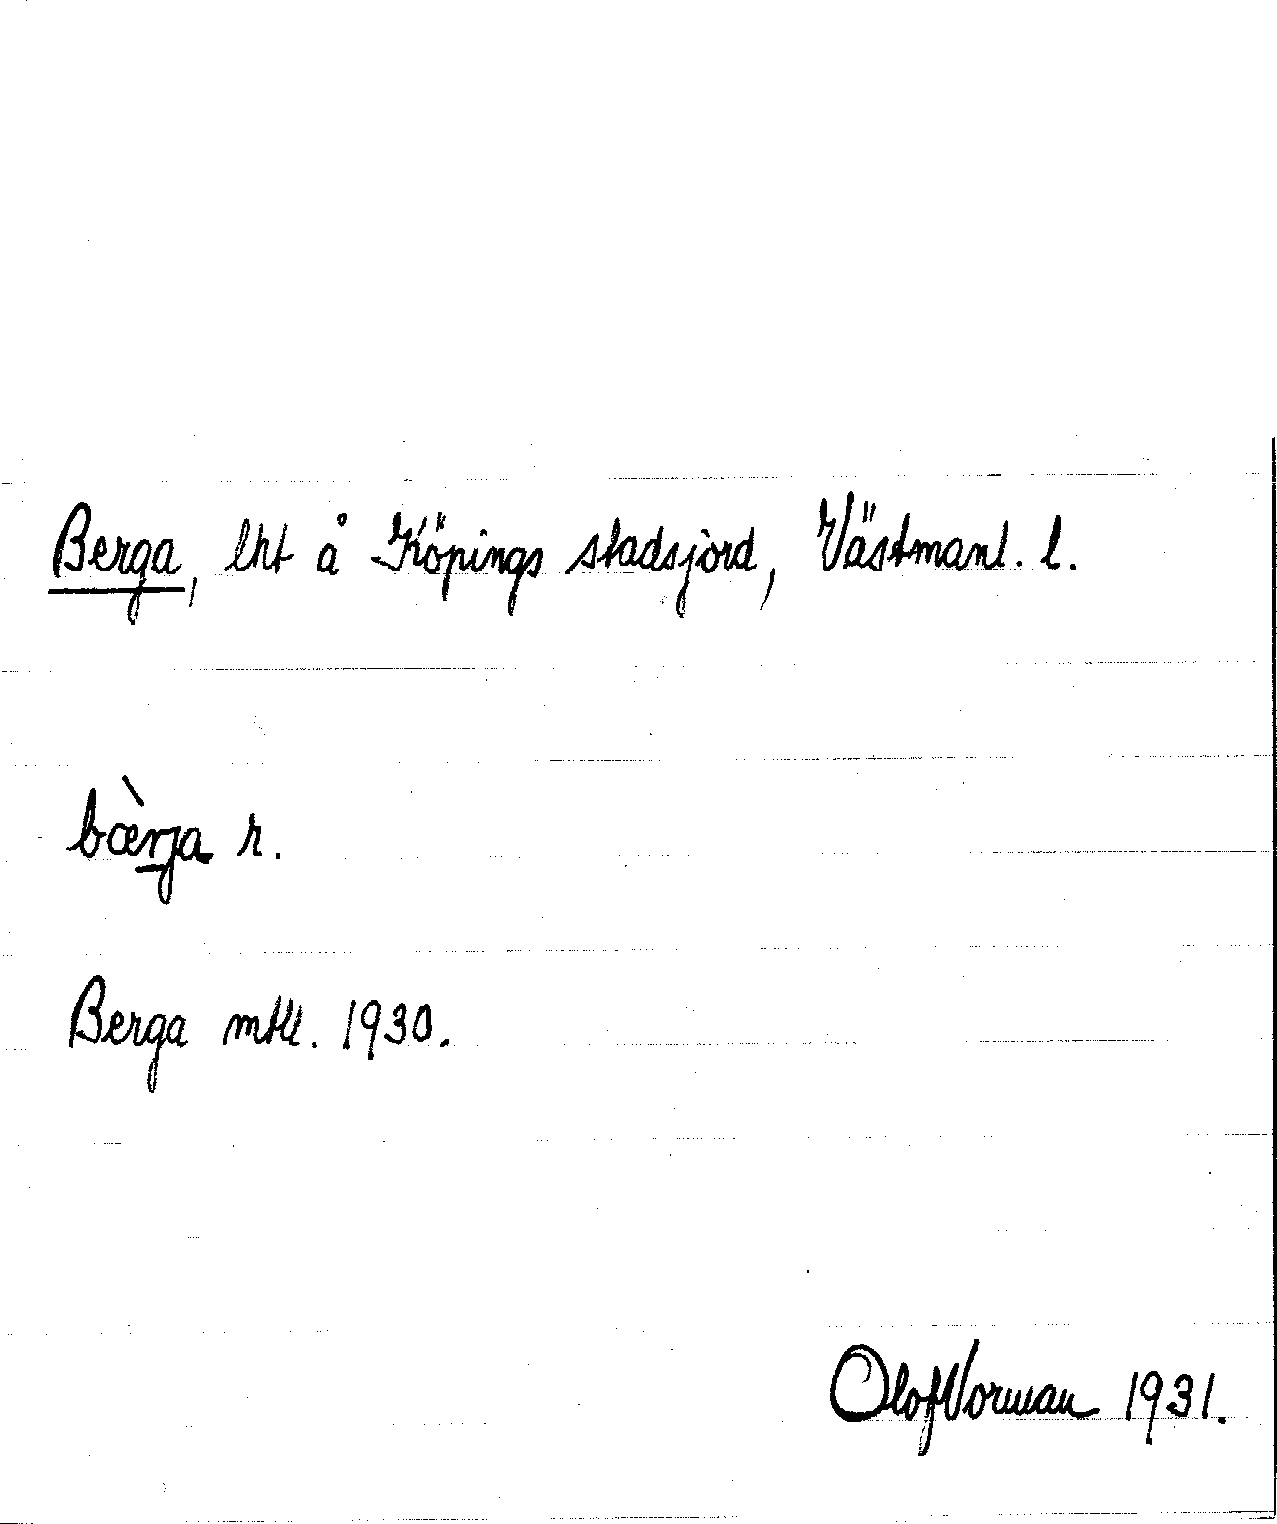 Berga, lht å Köpings stadsjord, Västmanl. l.
bœ̀rja r.
Berga mtll. 1930.
Olof Vorman 1931.